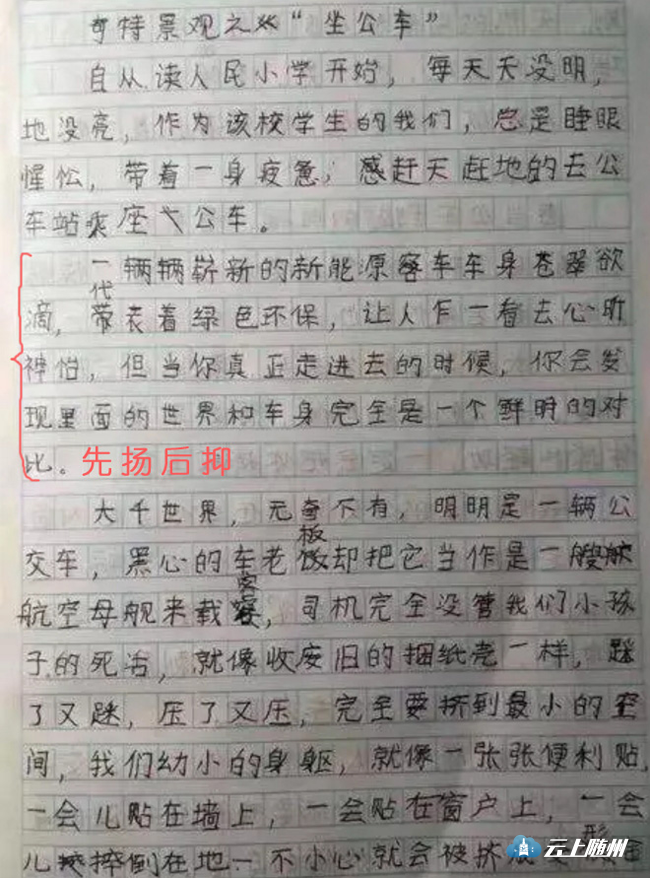 奇特景观之 “坐公车”
自从读人民小学开始，每天天没明，
地没亮，作为该校学生的我们，总是睡眼
惺忪，带着一身疲惫，感赶天赶地的去公
车站乘座公车。
一辆辆崭新的新能源客车车身苍翠欲
滴，代表着绿色环保，让人乍一看去心旷
神怡，但当你真正走进去的时候，你会发
现里面的世界和车身完全是一个鲜明的对
比。先扬后抑
大千世界，无奇不有，明明是一辆公
交车，黑心的车老板却把它当作是一艘
航空母舰来载客，司机完全没管我们小孩
子的死活，就像收废旧的捆纸壳一样，踩
了又踩，压了又压，完全要挤到最小的空
间，我们幼小的身躯，就像一张张便利贴，
一会儿贴在墙上，一会贴在窗户上，一会
儿摔倒在地一不小心就会被挤成变形
云上随州